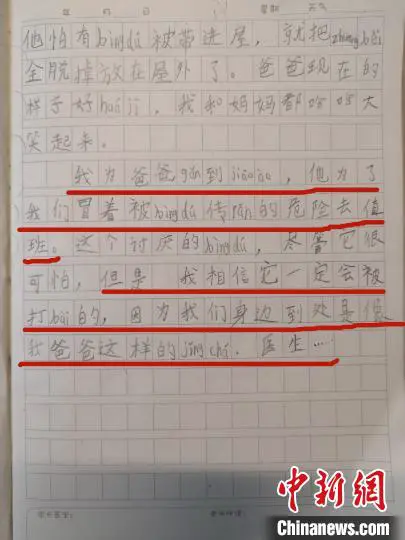 星期 天气
他怕有bìngdú被带进屋，就把zhuāngbèi
全脱掉放在屋外了。爸爸现在的
样子好huájī，我和妈妈都哈哈大
笑起来。
我为爸爸gǎn到jiāoào，他为了
我们冒着被bìngdú传rǎn的危险去值
班。这个讨厌的bìngdú，尽管它很
可怕，但是 我相信它一定会被
打bài的，因为我们身边到处是像
我爸爸这样的jǐngchá．医生……
中新网
Chinanews.com